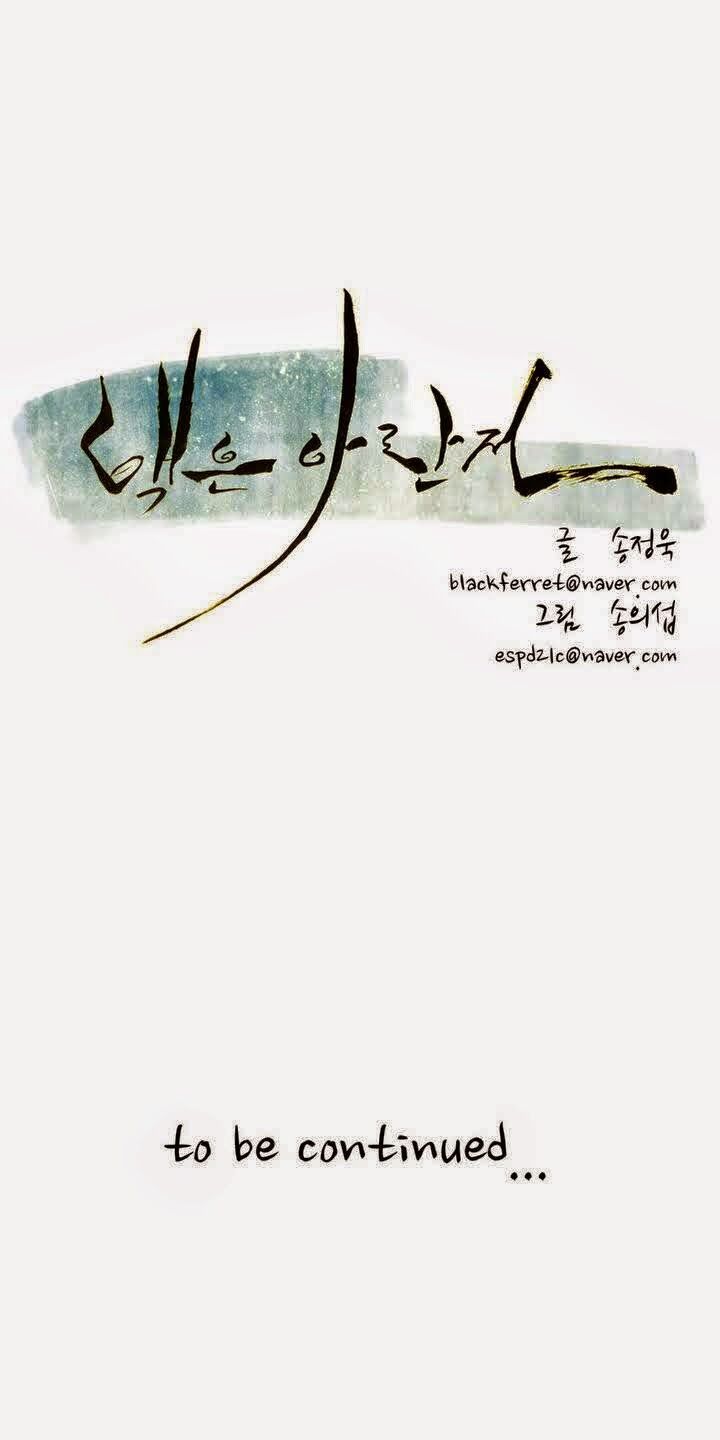 백은아란전
글 송정욱
blackferret@naver.com
그림 송의섭
espd21c@naver.com
to be continued...